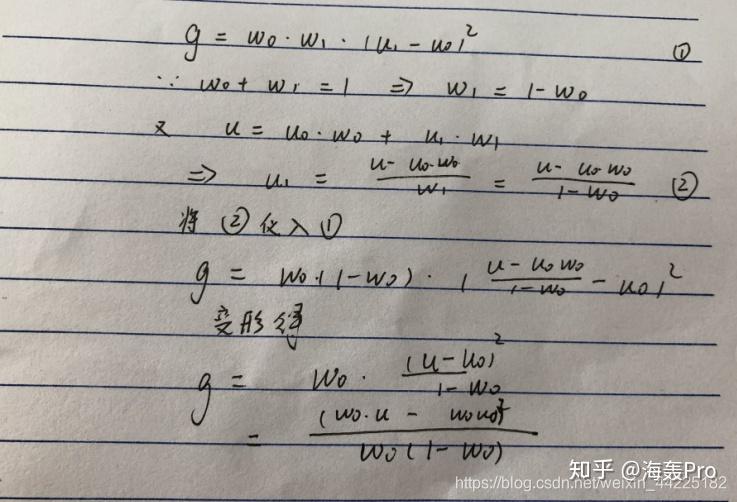 g = w₀·w₁·(u₁ - u₀)² ①
∵ w₀ + w₁ = 1 ⇒ w₁ = 1 - w₀
又 u = u₀·w₀ + u₁·w₁
⇒ u₁ = (u - u₀·w₀)/w₁ = (u - u₀w₀)/(1 - w₀) ②
将 ② 代入 ①
g = w₀·(1 - w₀)·((u - u₀w₀)/(1 - w₀) - u₀)²
变形得
g = w₀·(u - u₀)²/(1 - w₀)
= (w₀·u - w₀u₀)²/(w₀(1 - w₀))
知乎 @海轰Pro
https://blog.csdn.net/weixin_44225182